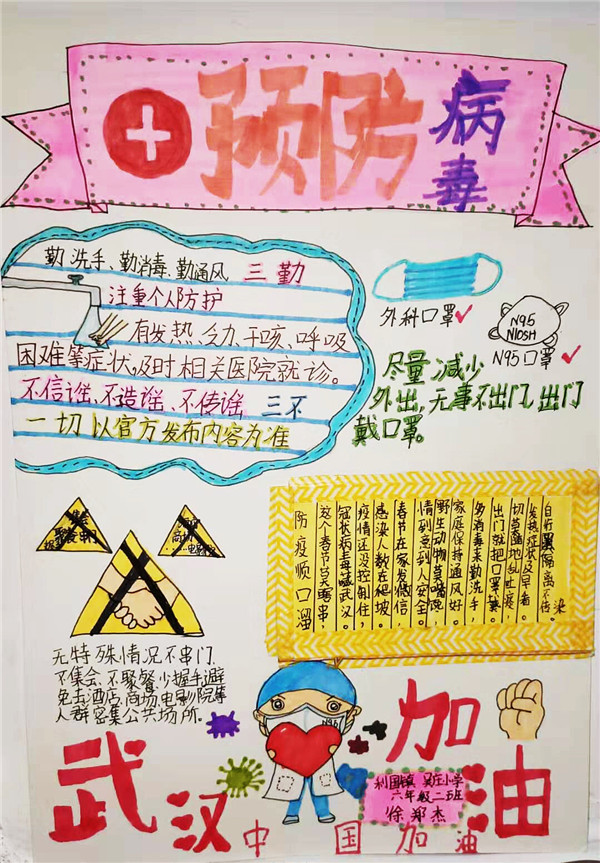 预防
病毒
勤洗手、勤消毒、勤通风 三勤
注重个人防护
有发热、乏力、干咳、呼吸
困难等症状,及时相关医院就诊。
不信谣、不造谣、不传谣 三不
一切以官方发布内容为准
外科口罩
N95
NIOSH
N95口罩
尽量减少
外出,无事不出门,出门
戴口罩。
防疫顺口溜
冠状病毒虐武汉。
疫情还没控制住,
感染人数在爬坡。
春节在家发微信,
情到意到人安全。
野生动物莫嘴馋,
家庭保持通风好。
多消毒来勤洗手,
出门就把口罩戴。
切莫随地乱吐痰
发热症状及早看。
隔离不传染
无特殊情况不串门、
不集会、不聚餐少握手避
免去酒店,商场,电影院等
人群密集公共场所。
N95
武汉
加油
中国加油
利国镇 吴庄小学
六年级二班
徐郑杰